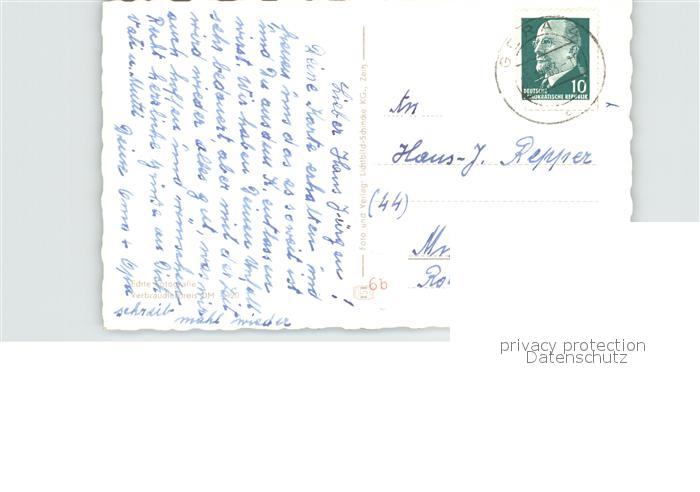 Lieber Hans Jürgen!
Deine Karte erhalten und
freuen uns das es soweit ist
und Du aus dem K. entlassen
wirst. Wir haben Deinen Unfall
sehr bedauert, aber mit der Zeit
wird wieder alles gut, was wir
auch hoffen und wünschen.
Recht herzliche Grüße an Dich
Vati u. Mutti Deine Oma + Opa
schreib mahl wieder
Echte Fotografie
Verbraucherpreis DM 0,20
Foto und Verlag: Lichtbild-Schincke KG., Zeitz
6b
GERA
DEUTSCHE
DEMOKRATISCHE REPUBLIK
10
An
Hans-J. Repper
(44)
privacy protection
Datenschutz